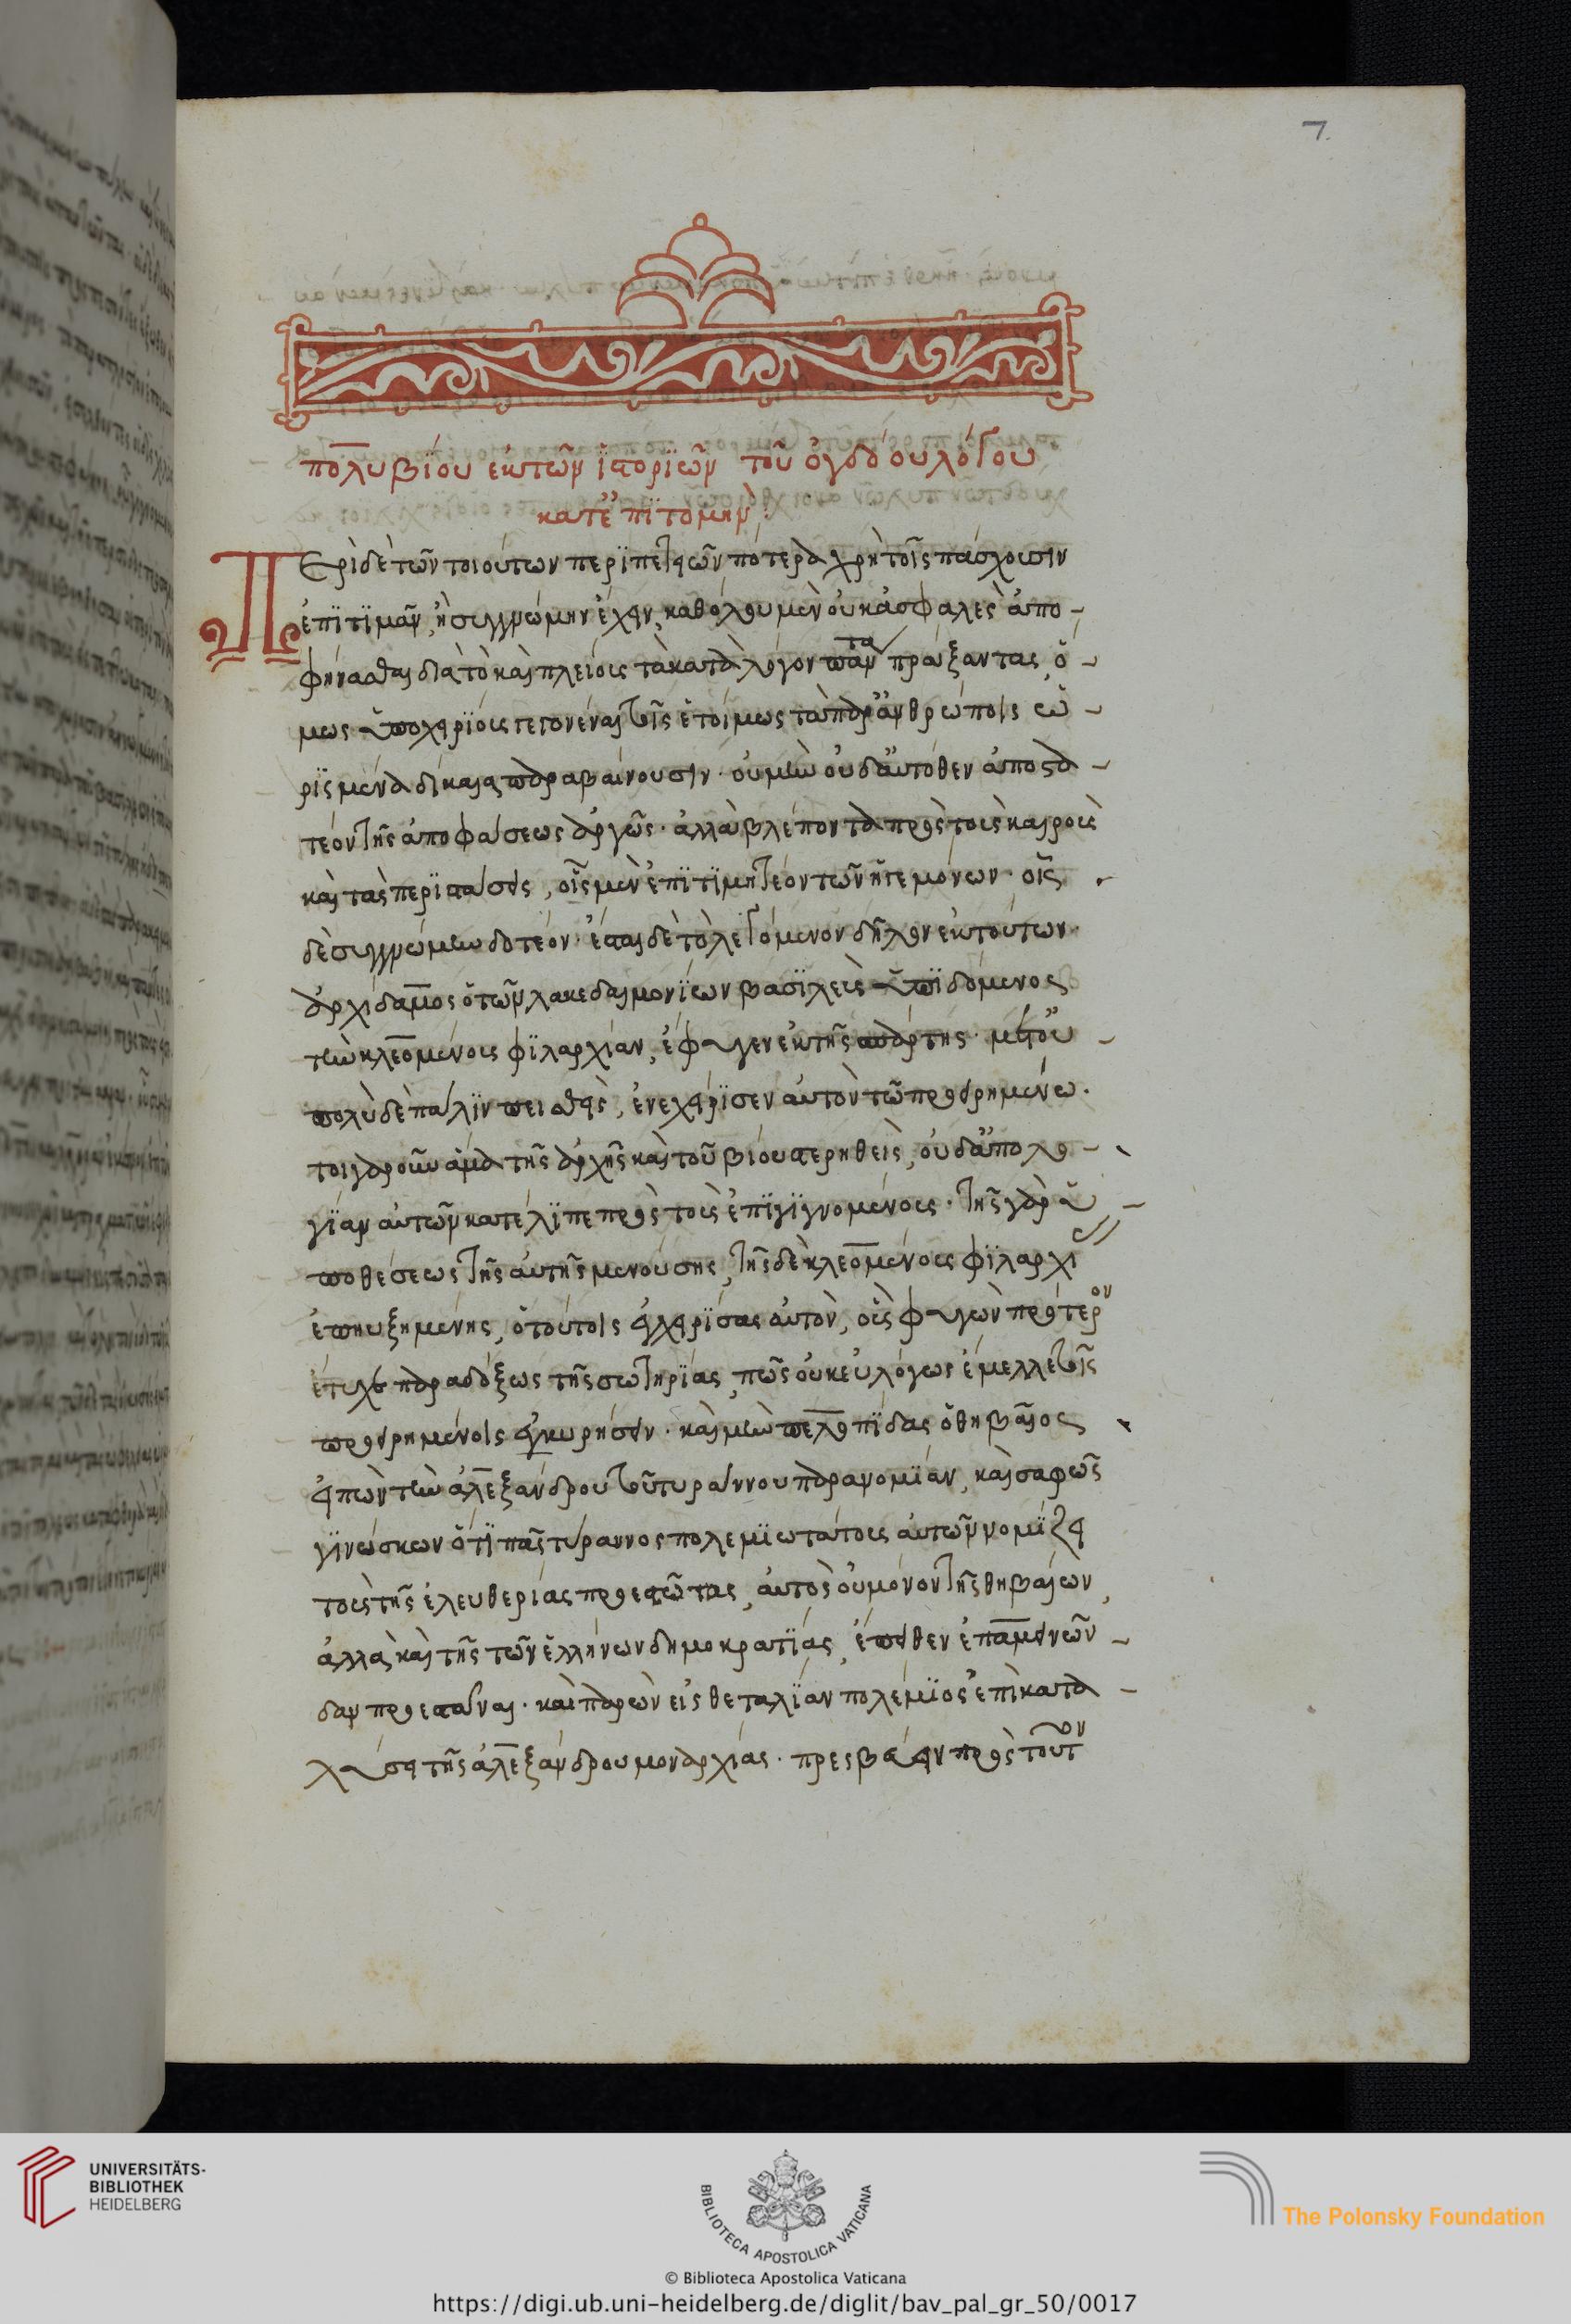 πολυβίου ἐκ τῶν ἱστοριῶν τοῦ ὀγδόου λόγου
κατ' ἐπιτομήν:
Περὶ δὲ τῶν τοιούτων περιπετειῶν πότερα χρὴ τοῖς πάσχουσιν
ἐπιτιμᾶν, ἢ συγγνώμην ἔχειν, καθόλου μὲν οὐκ ἀσφαλὲς ἀπο-
φήνασθαι διὰ τὸ καὶ πλείους τὰ κατὰ λόγον πάντα πράξαντας, ὅ-
μως ὑποχειρίους γεγονέναι τοῖς ἑτοίμως τὰ παρ' ἀνθρώποις ὡ-
ρισμένα δίκαια παραβαίνουσιν· οὐ μὴν οὐδ' αὐτόθεν ἀποστα-
τέον τῆς ἀποφάσεως ἀργῶς· ἀλλὰ βλέποντα πρὸς τοὺς καιροὺς
καὶ τὰς περιστάσεις, οἷς μὲν ἐπιτιμητέον τῶν ἡγεμόνων· οἷς
δὲ συγγνώμην δοτέον· ἔσται δὲ τὸ λεγόμενον δῆλον ἐκ τούτων·
ἀρχίδαμος ὁ τῶν λακεδαιμονίων βασιλεὺς ὑπιδόμενος
τὴν κλεομένους φιλαρχίαν, ἔφυγεν ἐκ τῆς σπάρτης· μετ' οὐ-
πολὺ δὲ πάλιν πεισθεὶς, ἐνεχείρισεν αὐτὸν τῷ προειρημένω·
τοιγαροῦν ἅμα τῆς ἀρχῆς καὶ τοῦ βίου στερηθεὶς, οὐδ' ἀπολο-
γίαν αὐτῶν κατέλιπε πρὸς τοὺς ἐπιγιγνομένους· τῆς γὰρ ὑ-
ποθέσεως τῆς αὐτῆς μενούσης, τῆς δὲ κλεομένους φιλαρχί
ἐπηυξημένης, ὁ τούτοις ἐγχειρίσας αὐτὸν, οὓς φυγὼν πρότερον
ἔτυχε παραδόξως τῆς σωτηρίας, πῶς οὐκ εὐλόγως ἔμελλε τοῖς
προειρημένοις ἐγκυρήσειν· καὶ μὴν πελοπίδας ὁ θηβαῖος
εἰπὼν τὴν ἀλεξάνδρου τοῦ τυράννου παρανομίαν, καὶ σαφῶς
γινώσκων ὅτι πᾶς τύραννος πολεμιωτάτους αὐτῶν νομίζει
τοὺς τῆς ἐλευθερίας προεστῶτας, αὐτὸς οὐ μόνον τῆς θηβαίων,
ἀλλὰ καὶ τῆς τῶν ἑλλήνων δημοκρατίας, ἔπειθεν ἐπαμεινῶν-
δαν προεστάναι· καὶ παρὼν εἰς θεταλίαν πολέμιος ἐπὶ κατα-
λύσει τῆς ἀλεξάνδρου μοναρχίας· πρεσβεύειν πρὸς τοῦτον
7.
UNIVERSITÄTS-
BIBLIOTHEK
HEIDELBERG
BIBLIOTECA APOSTOLICA VATICANA
The Polonsky Foundation
© Biblioteca Apostolica Vaticana
https://digi.ub.uni-heidelberg.de/diglit/bav_pal_gr_50/0017